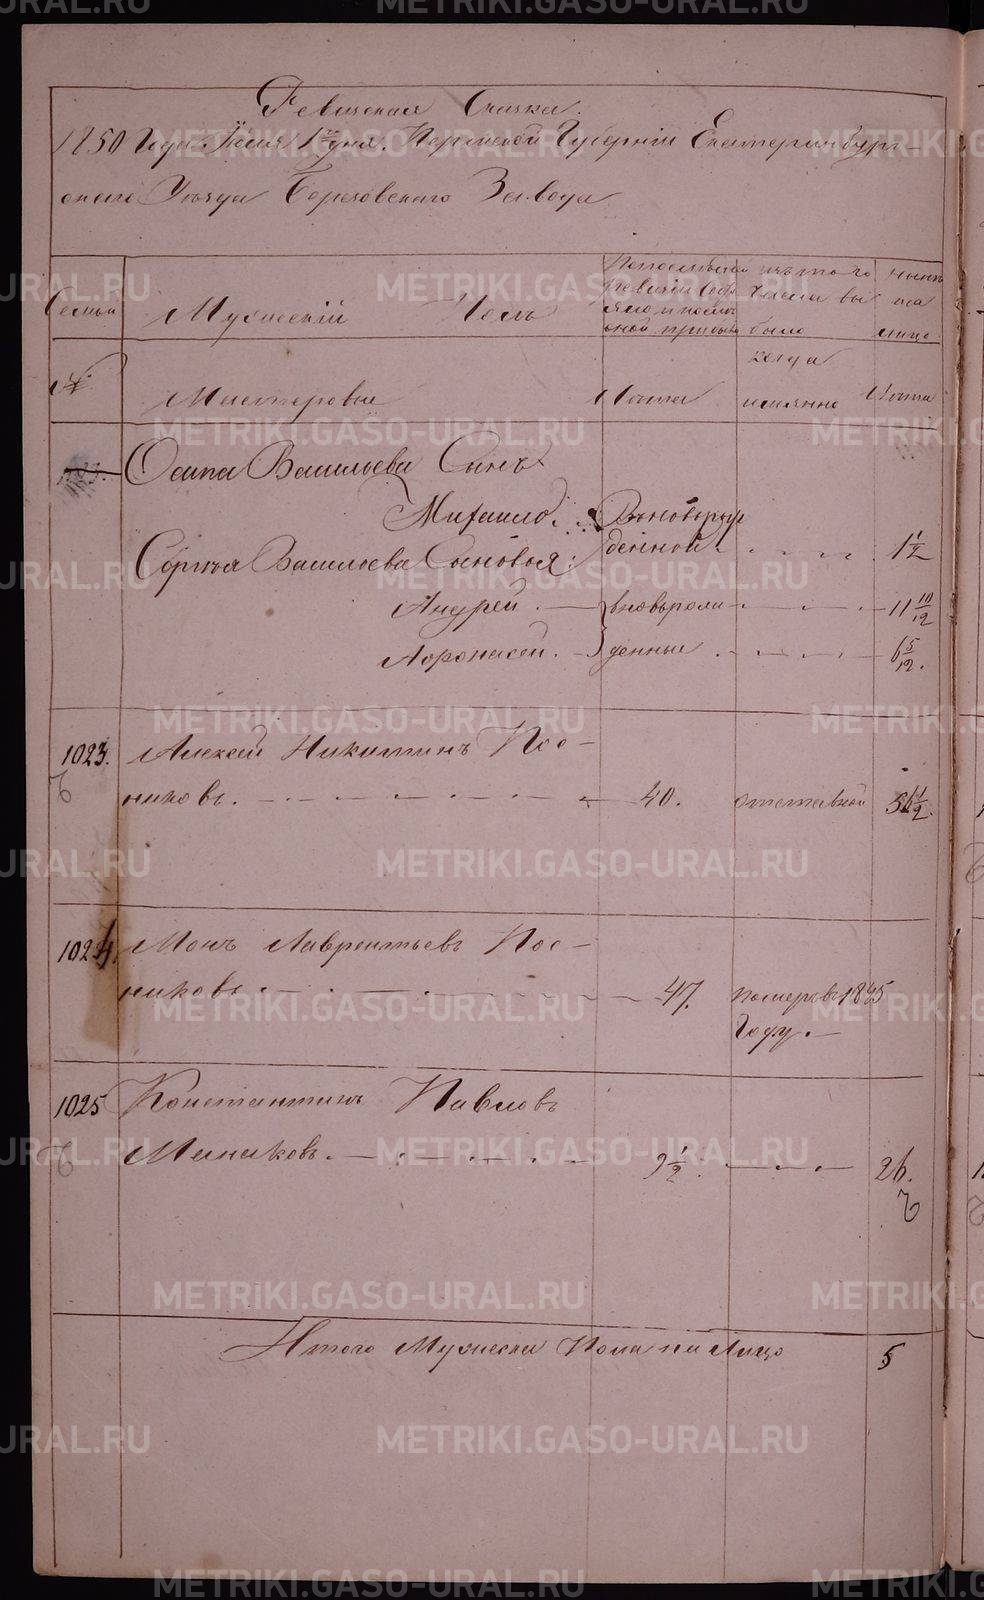 Ревизская Сказка.
1850 Года Июля 1го дня. Пермской Губернiи Екатеринбург-
скаго Уезда Березовскаго Завода
Семьи
Мужескiй Полъ
Попоследней
ревизiи состо
яло и после
оной прибыло
изъ того
числа вы
было
ныне
на
лицо
№
Мастеровые
Лета
когда
имянно
Лета
1023.
Осипа Васильева Сынъ
Михаило.
Вновьрож
денной.
1 1/2
Сергея Васильева Сыновья:
Андрей. — вновьрож — 11 10/12
Афонасей. — денные 6 5/12.
1023. Алексей Никитинъ Пос-
никовъ. — 40. отставной 56 1/2.
1024. Мокъ Лаврентьевъ Пос-
никовъ — 47. померъ въ 1845
Году. —
1025 Константинъ Павловъ
Малаховъ. — 9 1/2 — 26.
Итого Мужеска Пола на Лицо 5
METRIKI.GASO-URAL.RU